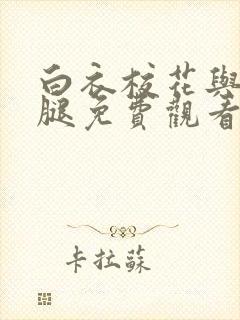 白衣校花與
腿免費觀看
卡拉蘇